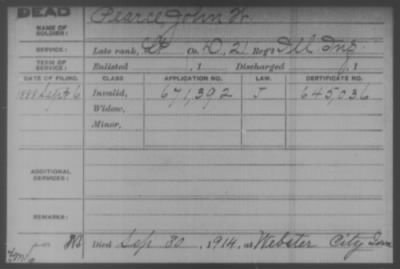 DEAD
NAME OF SOLDIER: Pearce, John W.
SERVICE: Late rank, Co. D, 2 Reg't Ill Inf
TERM OF SERVICE: Enlisted , 1 Discharged , 1
DATE OF FILING. CLASS APPLICATION NO. LAW. CERTIFICATE NO.
1888 Sept 6 Invalid, 671,392 J 645,036
Widow,
Minor,
ADDITIONAL SERVICES:
REMARKS:
Died Sep 30, 1914, at Webster City Iowa